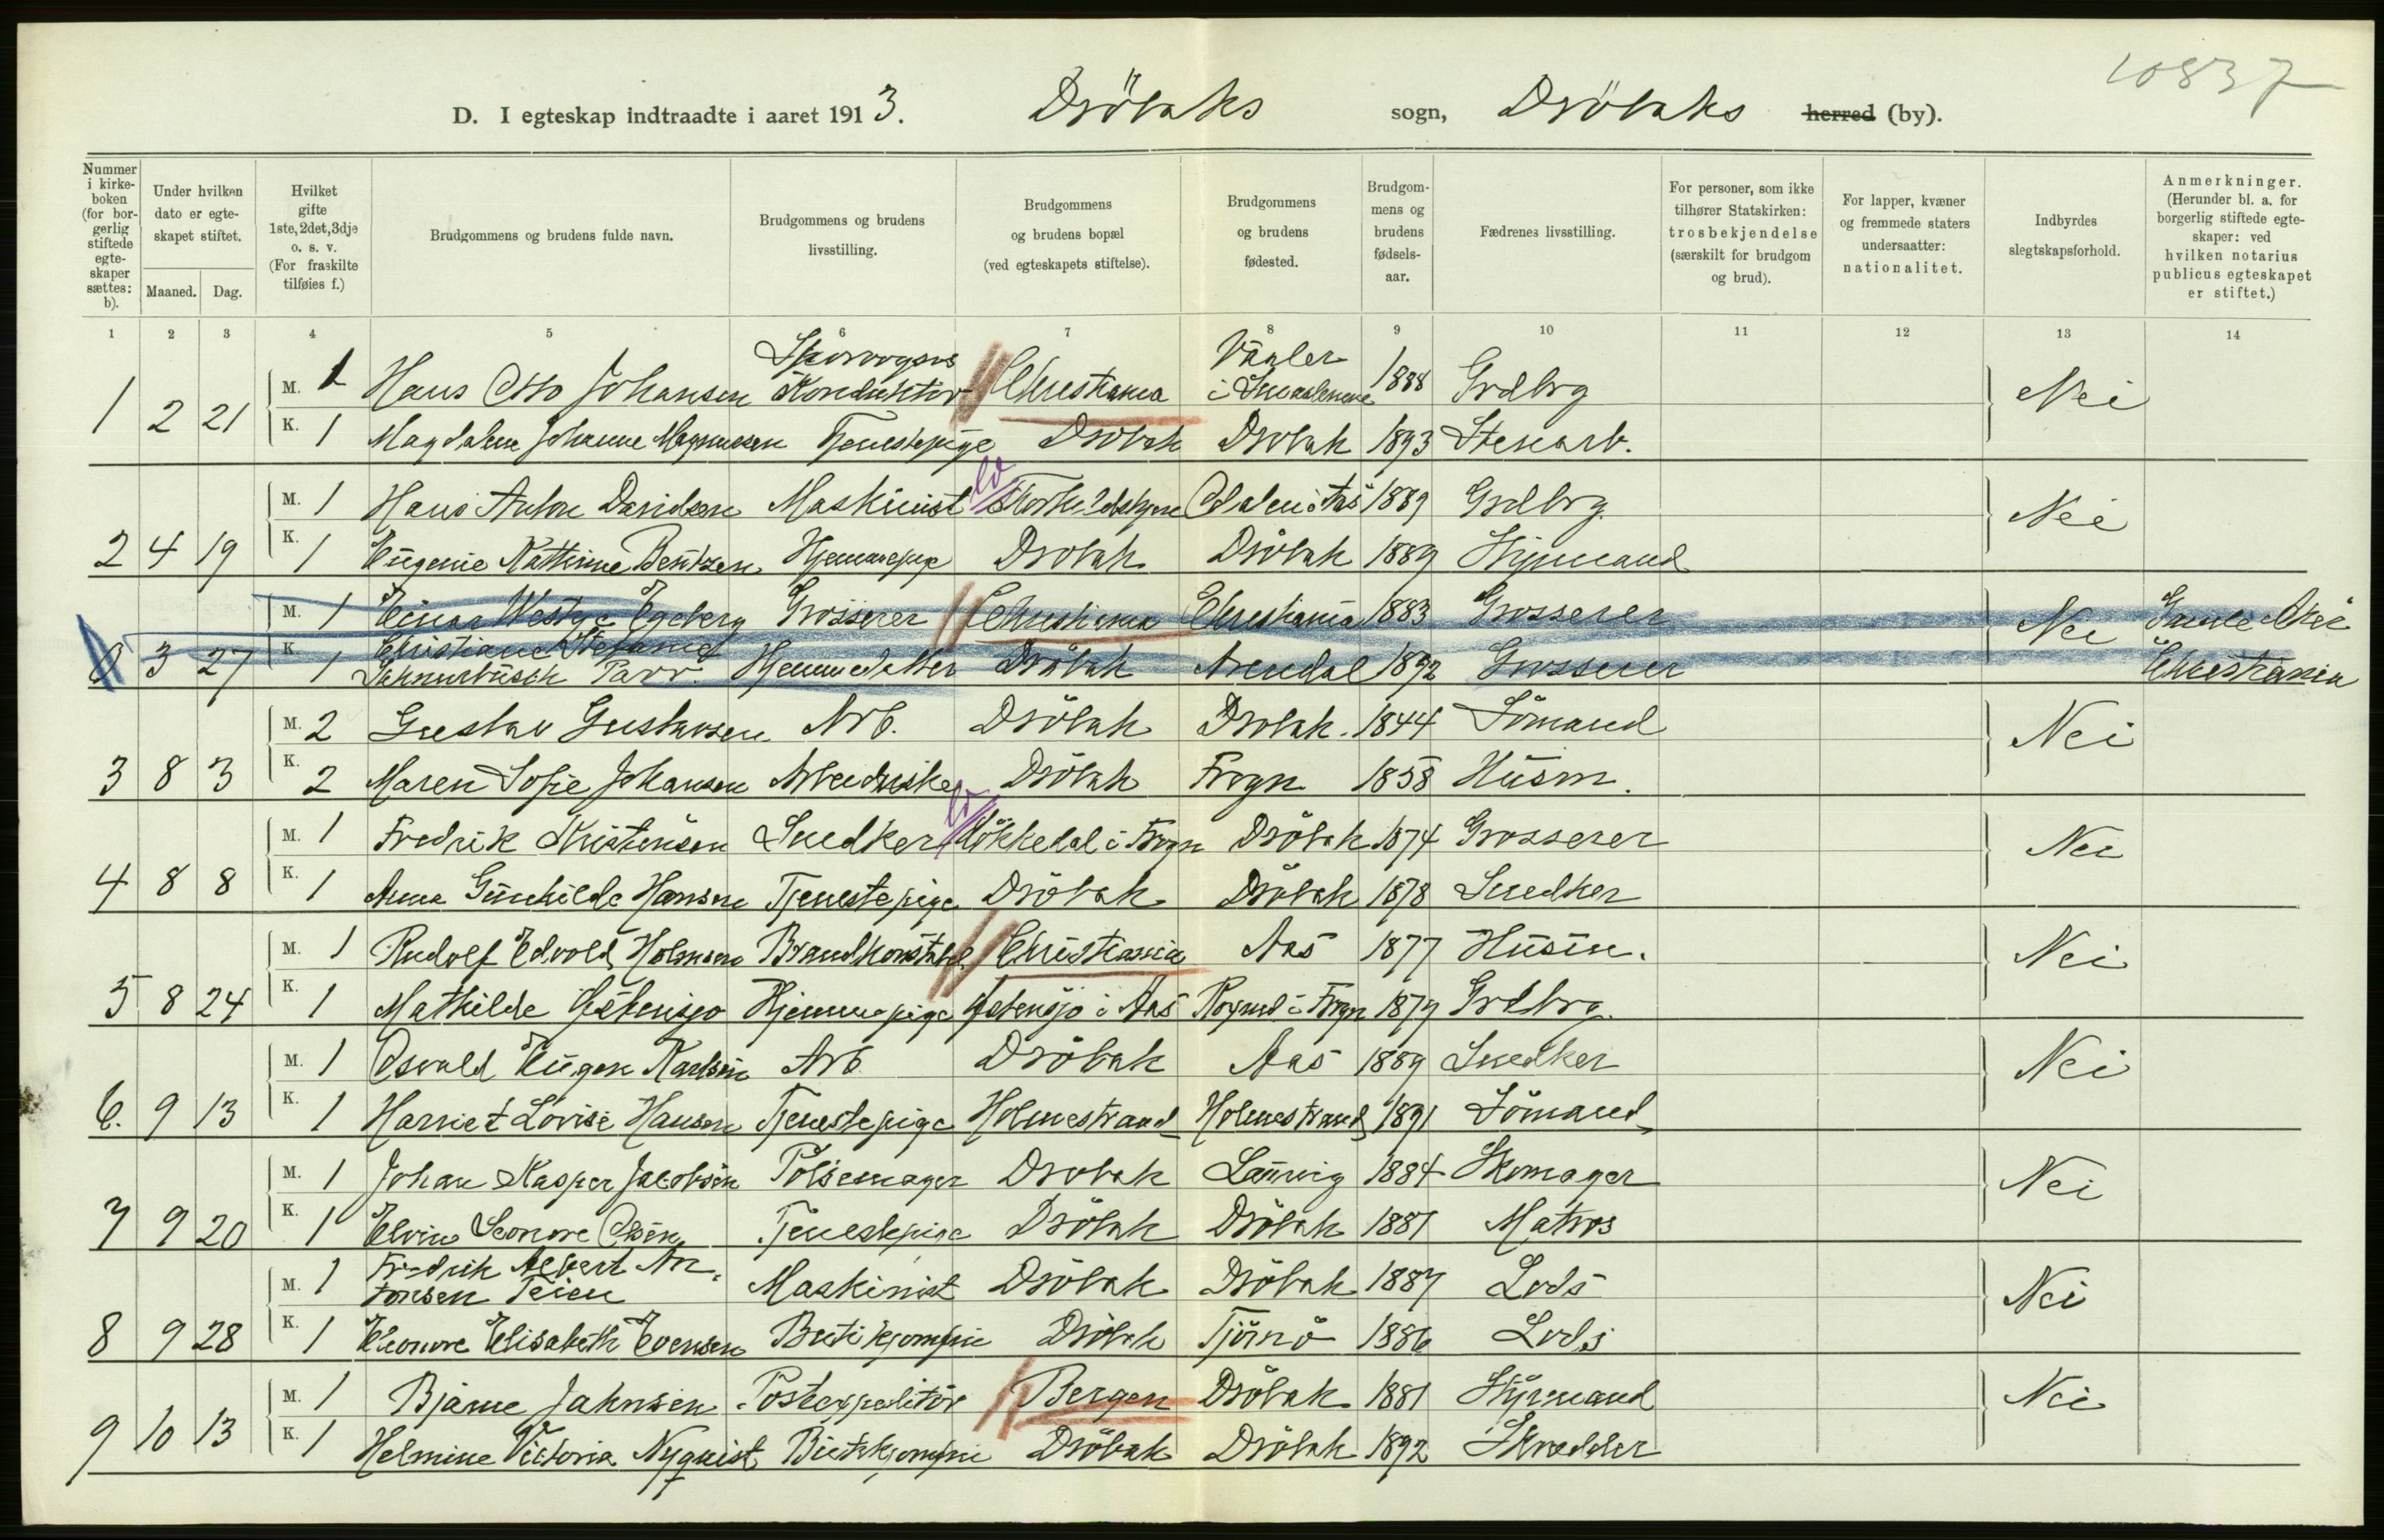 10837
D. I egteskap indtraadte i aaret 1913. Dröbaks sogn, Dröbaks herred (by).
Nummer i kirkeboken (for borgerlig stiftede egteskaper sættes: b). | Under hvilken dato er egteskapet stiftet. Maaned. Dag. | Hvilket gifte 1ste, 2det, 3dje o. s. v. (For fraskilte tilføies f.) | Brudgommens og brudens fulde navn. | Brudgommens og brudens livsstilling. | Brudgommens og brudens bopæl (ved egteskapets stiftelse). | Brudgommens og brudens fødested. | Brudgommens og brudens fødselsaar. | Fædrenes livsstilling. | For personer, som ikke tilhører Statskirken: trosbekjendelse (særskilt for brudgom og brud). | For lapper, kvæner og fremmede staters undersaatter: nationalitet. | Indbyrdes slegtskapsforhold. | Anmerkninger. (Herunder bl. a. for borgerlig stiftede egteskaper: ved hvilken notarius publicus egteskapet er stiftet.)
1 2 3 4 5 6 7 8 9 10 11 12 13 14
M. 1 Hans Otto Johansen Sporvogns Konduktör Christiania Vaaler i Smaalenene 1888 Grdbrg Nei
1 2 21 K. 1 Magdalene Johanne Magnussen Tjenestepige Dröbak Dröbak 1893 Stenarb.
M. 1 Hans Anton Davidsen Maskinist Aas 1889 Grdbrg. Nei
2 4 19 K. 1 Eugenie Kathrine Bentzen Hjemmepige Dröbak Dröbak 1889 Styrmand
M. 1 Einar Westye Egeberg Grosserer Christiania Christiania 1883 Grosserer Nei Gamle Aker
3 27 K. 1 Christiane Stefanie Schnurbusch Parr. Hjemmedatter Dröbak Arendal 1892 Grosserer Christiania
M. 2 Gustav Gustavsen Arb. Dröbak Dröbak. 1844 Sömand Nei
3 8 3 K. 2 Maren Sofie Johansen Arbeiderske Dröbak Frogn 1858 Husm.
M. 1 Fredrik Kristensen Snedker i Frogn Dröbak 1874 Grosserer Nei
4 8 8 K. 1 Anna Gunhilde Hansen Tjenestepige Dröbak Dröbak 1878 Snedker
M. 1 Rudolf Edvold Holmsen Brandkonstabel Christiania Aas 1877 Husm. Nei
5 8 24 K. 1 Mathilde Østensjø Hjemmepige Østensjø i Aas i Frogn 1879 Grdbrg.
M. 1 Osvald Eugen Karlsen Arb. Dröbak Aas 1889 Snedker Nei
6. 9 13 K. 1 Harriet Lovise Hansen Tjenestepige Holmestrand Holmestrand 1891 Sömand
M. 1 Johan Kasper Jacobsen Pölsemager Dröbak Laurvig 1884 Skomager Nei
7 9 20 K. 1 Elvine Leonore Olsen Tjenestepige Dröbak Dröbak 1881 Matros
M. 1 Fredrik Albert Antonsen Teien Maskinist Dröbak Dröbak 1887 Lods Nei
8 9 28 K. 1 Eleonore Elisabeth Evensen Butikjomfru Dröbak Tjömö 1886 Lods
M. 1 Bjarne Jahnsen Postexpeditör Bergen Dröbak 1881 Styrmand Nei
9 10 13 K. 1 Helmine Victoria Nyquist Butikjomfru Dröbak Dröbak 1892 Skredder